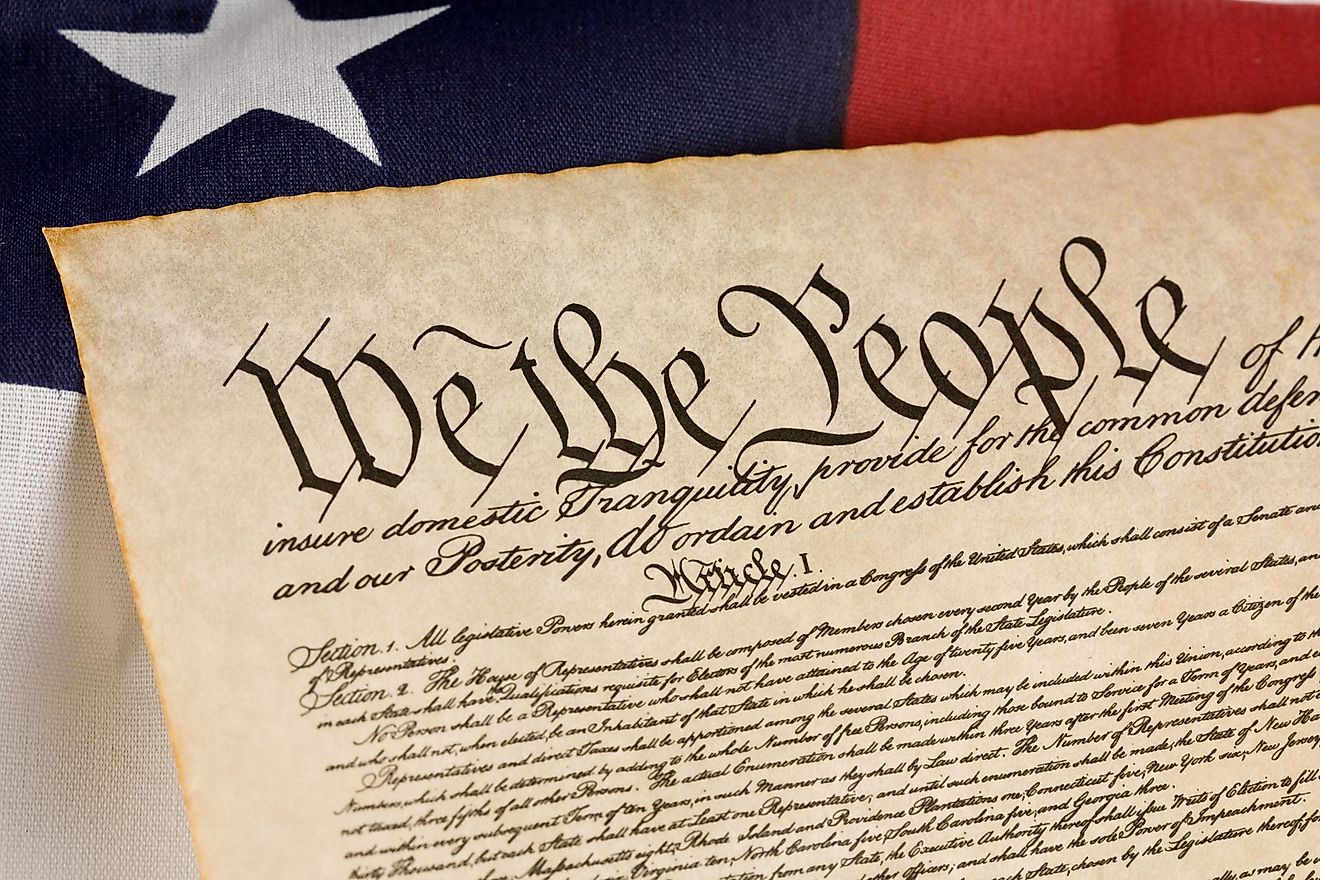 We the People of
insure domestic Tranquility, provide for the common defen
and our Posterity, do ordain and establish this Constitutio
Article. I.
Section. 1. All legislative Powers herein granted shall be vested in a Congress of the United States, which shall consist of a Senate an
of Representatives.
Section. 2. The House of Representatives shall be composed of Members chosen every second Year by the People of the several States, an
in each State shall have Qualifications requisite for Electors of the most numerous Branch of the State Legislature.
No Person shall be a Representative who shall not have attained to the Age of twenty five Years, and been seven Years a Citizen of the
and who shall not, when elected, be an Inhabitant of that State in which he shall be chosen.
Representatives and direct Taxes shall be apportioned among the several States which may be included within this Union, according to th
Numbers, which shall be determined by adding to the whole Number of free Persons, including those bound to Service for a Term of Years, and e
not taxed, three fifths of all other Persons. The actual Enumeration shall be made within three Years after the first Meeting of the Congress
and within every subsequent Term of ten Years, in such Manner as they shall by Law direct. The Number of Representatives shall not
thirty Thousand, but each State shall have at Least one Representative; and until such enumeration shall be made, the State of New Ha
Massachusetts eight, Rhode Island and Providence Plantations one, Connecticut five, New York six, New Jersey
Virginia ten, North Carolina five, South Carolina five, and Georgia three.
from any State, the Executive Authority thereof shall issue Writs of Election to fill
other Officers; and shall have the sole Power of Impeachment.
each State, chosen by the Legislature thereof, fo